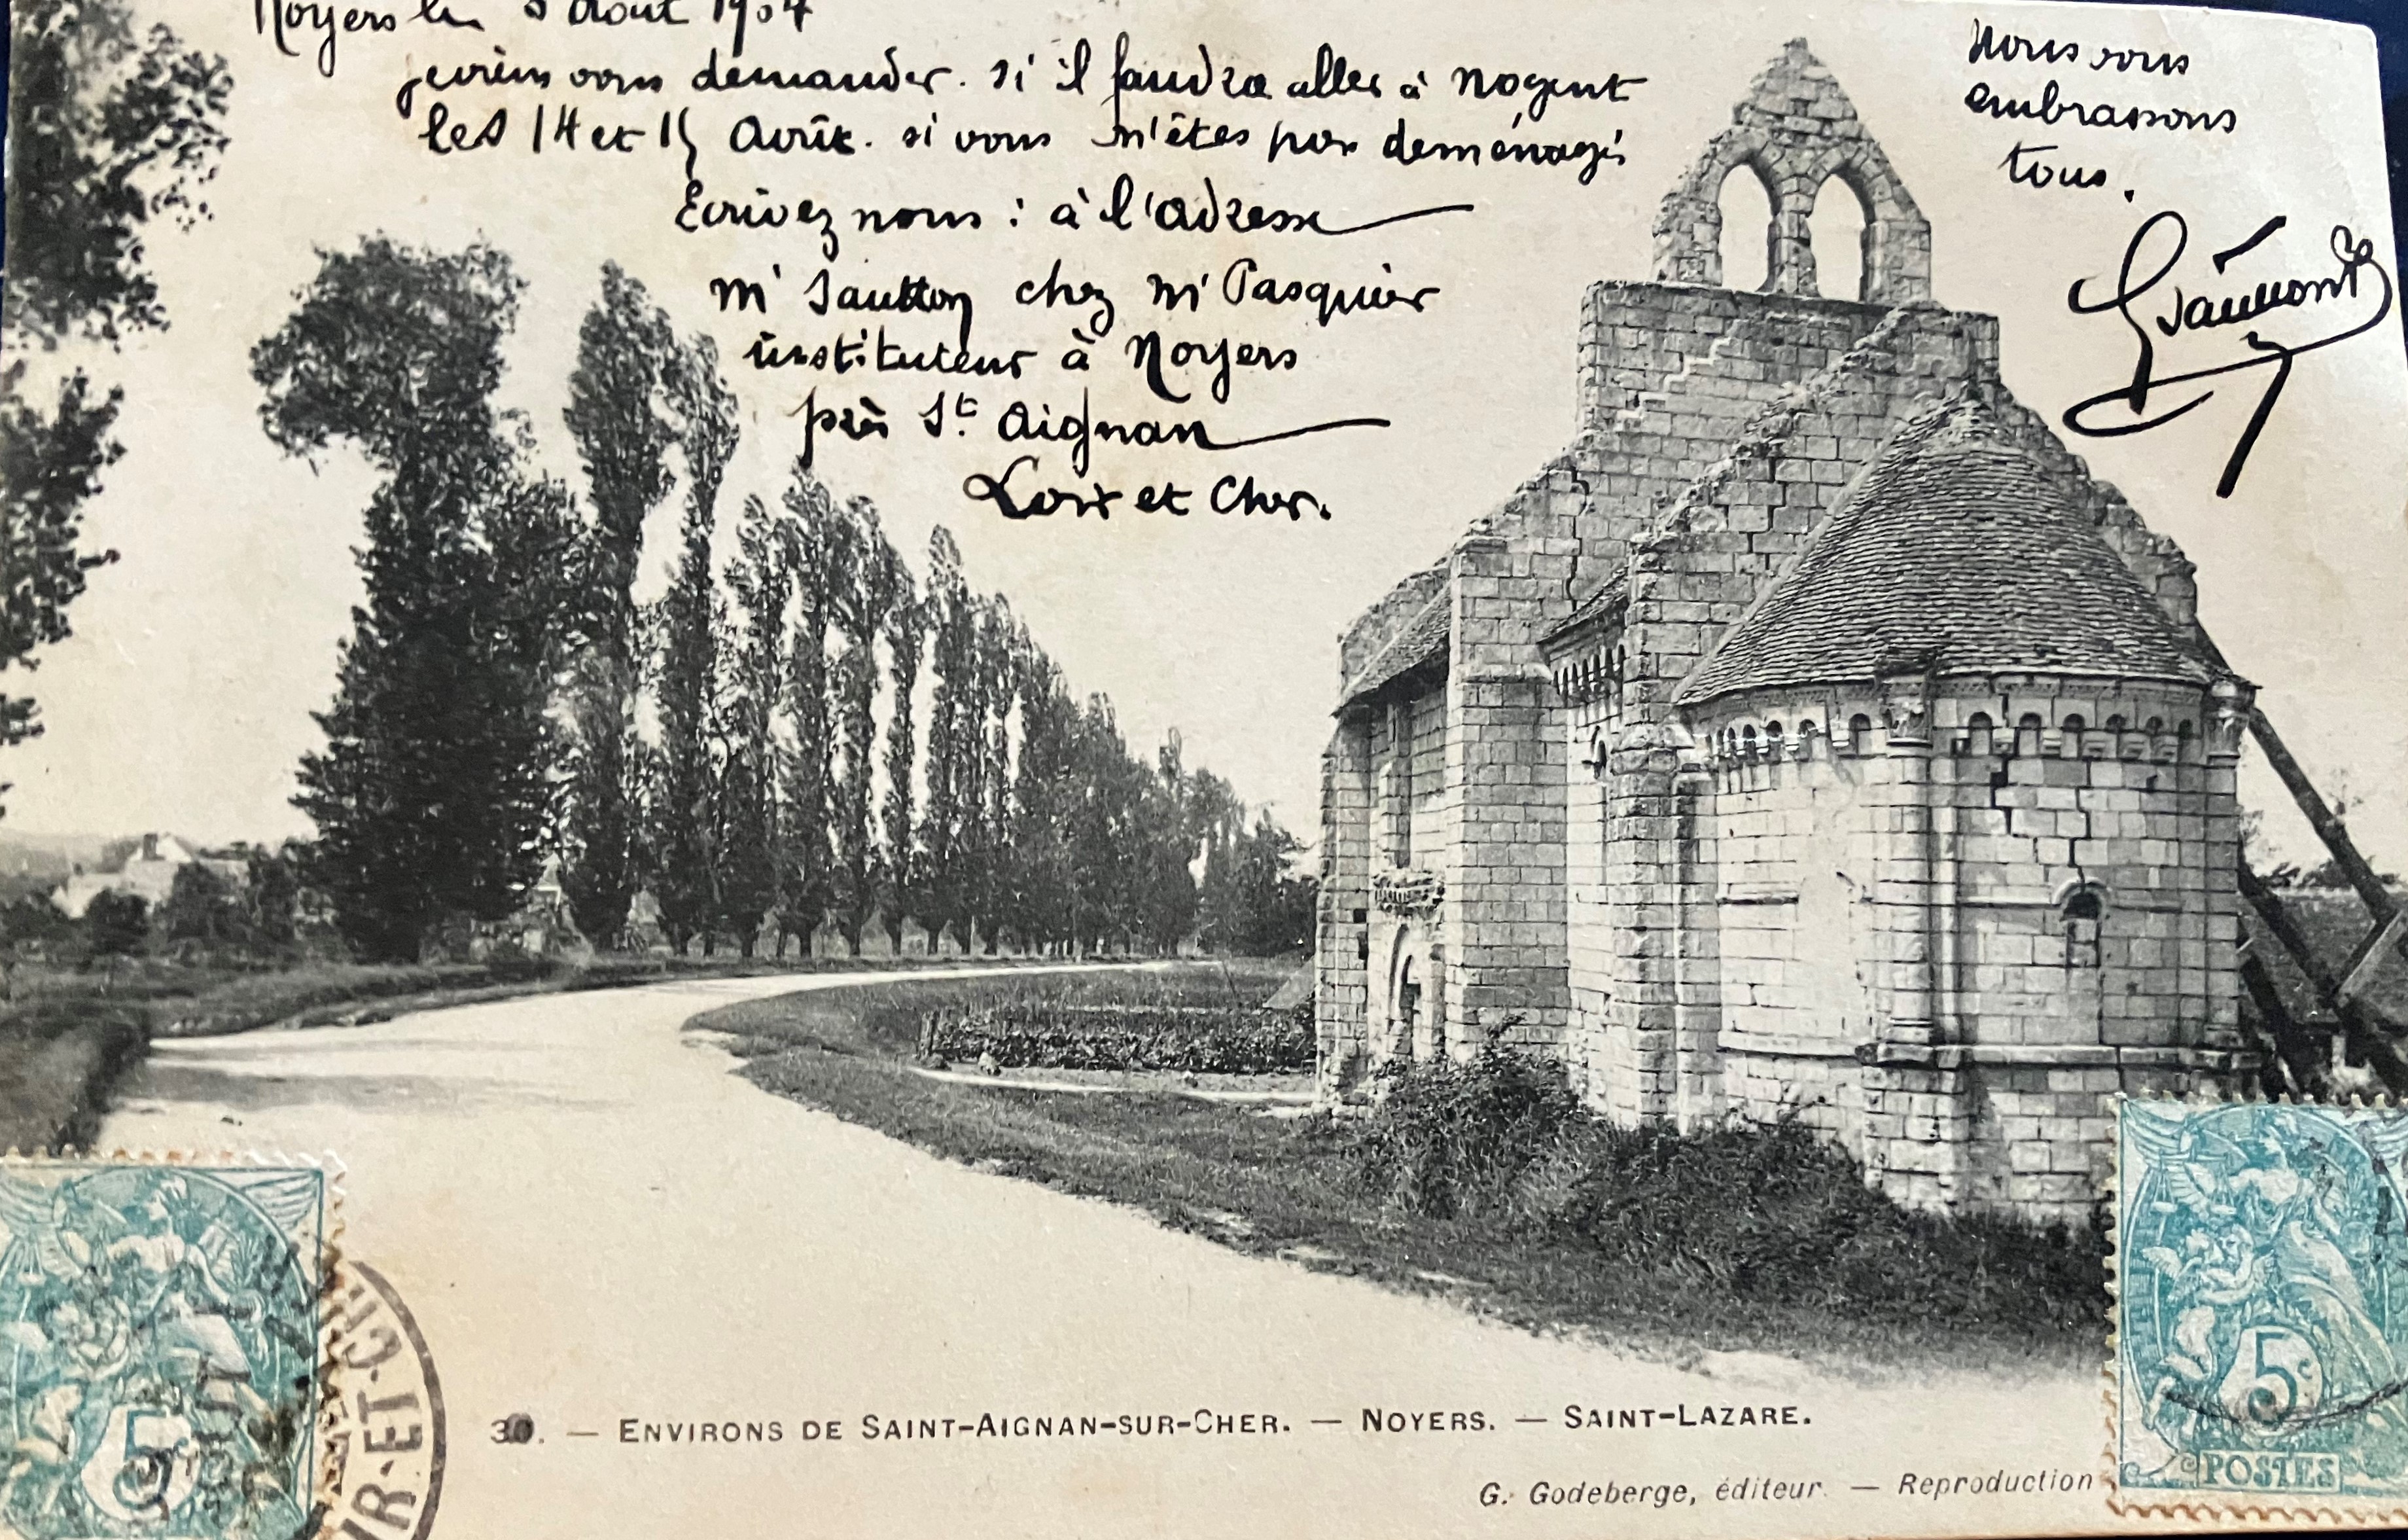 Noyers le 5 Août 1904
je viens vous demander. si il faudra aller à Nogent
les 14 et 15 Août. si vous n'êtes pas deménagés
Ecrivez nous : à l'adresse
chez Mr Pasquier
instituteur à Noyers
près St. Aignan
Loir et Cher.
Nous vous
embrassons
tous.
5
R-ET-CH
30. — ENVIRONS DE SAINT-AIGNAN-SUR-CHER. — NOYERS. — SAINT-LAZARE.
G. Godeberge, éditeur. — Reproduction
5c
POSTES